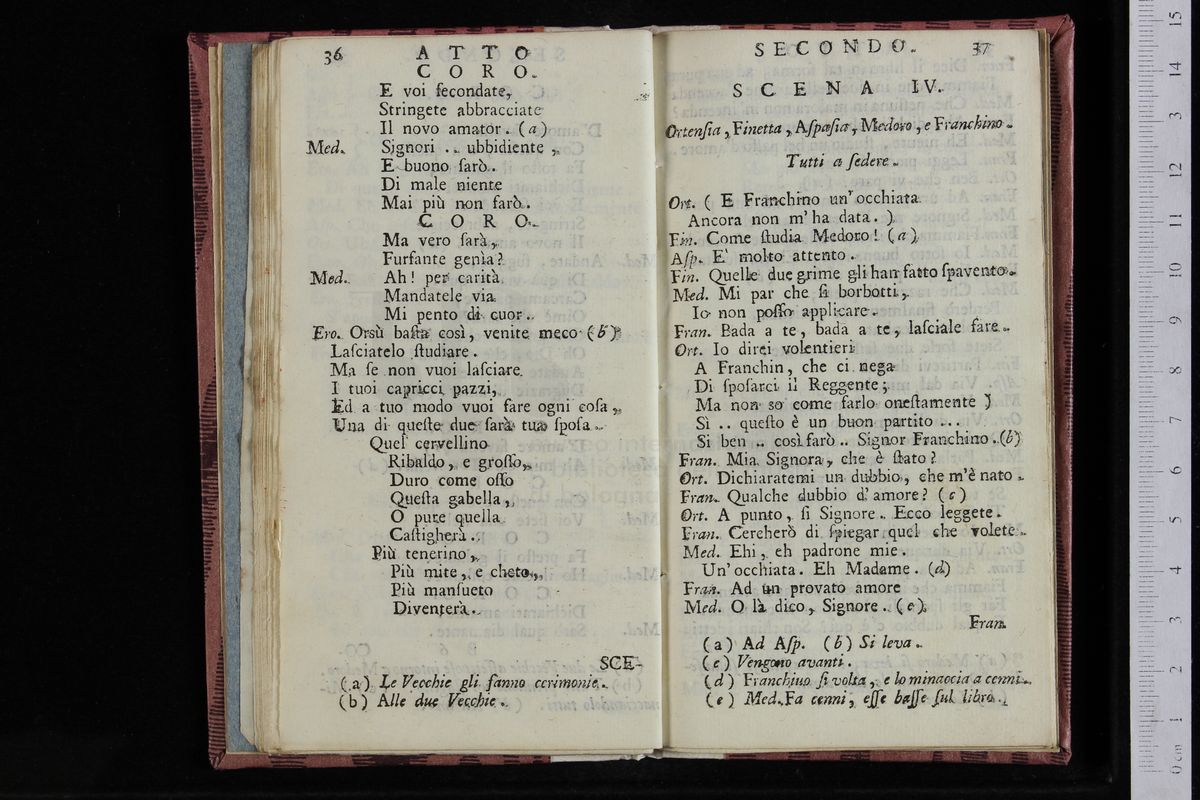 36 ATTO
CORO.
E voi ſecondate,
Stringete abbracciate
Il novo amator. (a)
Med. Signori .. ubbidiente,
E buono ſarò.
Di male niente
Mai più non farò.
CORO.
Ma vero ſarà,
Furfante genìa?
Med. Ah! per carità
Mandatele via
Mi pento di cuor.
Ero. Orsù baſta così, venite meco (b)
Laſciatelo ſtudiare.
Ma ſe non vuoi laſciare
I tuoi capricci pazzi,
Ed a tuo modo vuoi fare ogni coſa,
Una di queſte due ſarà tua ſpoſa.
Quel cervellino
Ribaldo, e groſſo,
Duro come oſſo
Queſta gabella,
O pure quella
Caſtigherà.
Più tenerino,
Più mite, e cheto,
Più manſueto
Diventerà.
SCE-
(a) Le Vecchie gli fanno cerimonie.
(b) Alle due Vecchie.
SECONDO. 37
SCENA IV.
Ortenſia, Finetta, Aſpaſia, Medoro, e Franchino.
Tutti a ſedere.
Ort. ( E Franchino un' occhiata
Ancora non m' ha data. )
Fin. Come ſtudia Medoro! (a)
Aſp. E' molto attento.
Fin. Quelle due grime gli han fatto ſpavento.
Med. Mi par che ſi borbotti,
Io non poſſo applicare.
Fran. Bada a te, bada a te, laſciale fare.
Ort. Io direi volentieri
A Franchin, che ci nega
Di ſpoſarci il Reggente;
Ma non so come farlo oneſtamente )
Sì .. queſto è un buon partito ...
Si ben .. così farò .. Signor Franchino. (b)
Fran. Mia Signora, che è ſtato?
Ort. Dichiaratemi un dubbio, che m'è nato.
Fran. Qualche dubbio d' amore? (c)
Ort. A punto, ſi Signore. Ecco leggete.
Fran. Cercherò di ſpiegar quel che volete.
Med. Ehi, eh padrone mie.
Un' occhiata. Eh Madame. (d)
Fran. Ad un provato amore
Med. O là dico, Signore. (e)
Fran.
(a) Ad Aſp. (b) Si leva.
(c) Vengono avanti.
(d) Franchino ſi volta, e lo minaccia a cenni.
(e) Med. Fa cenni, eſſe baſſe ſul libro.